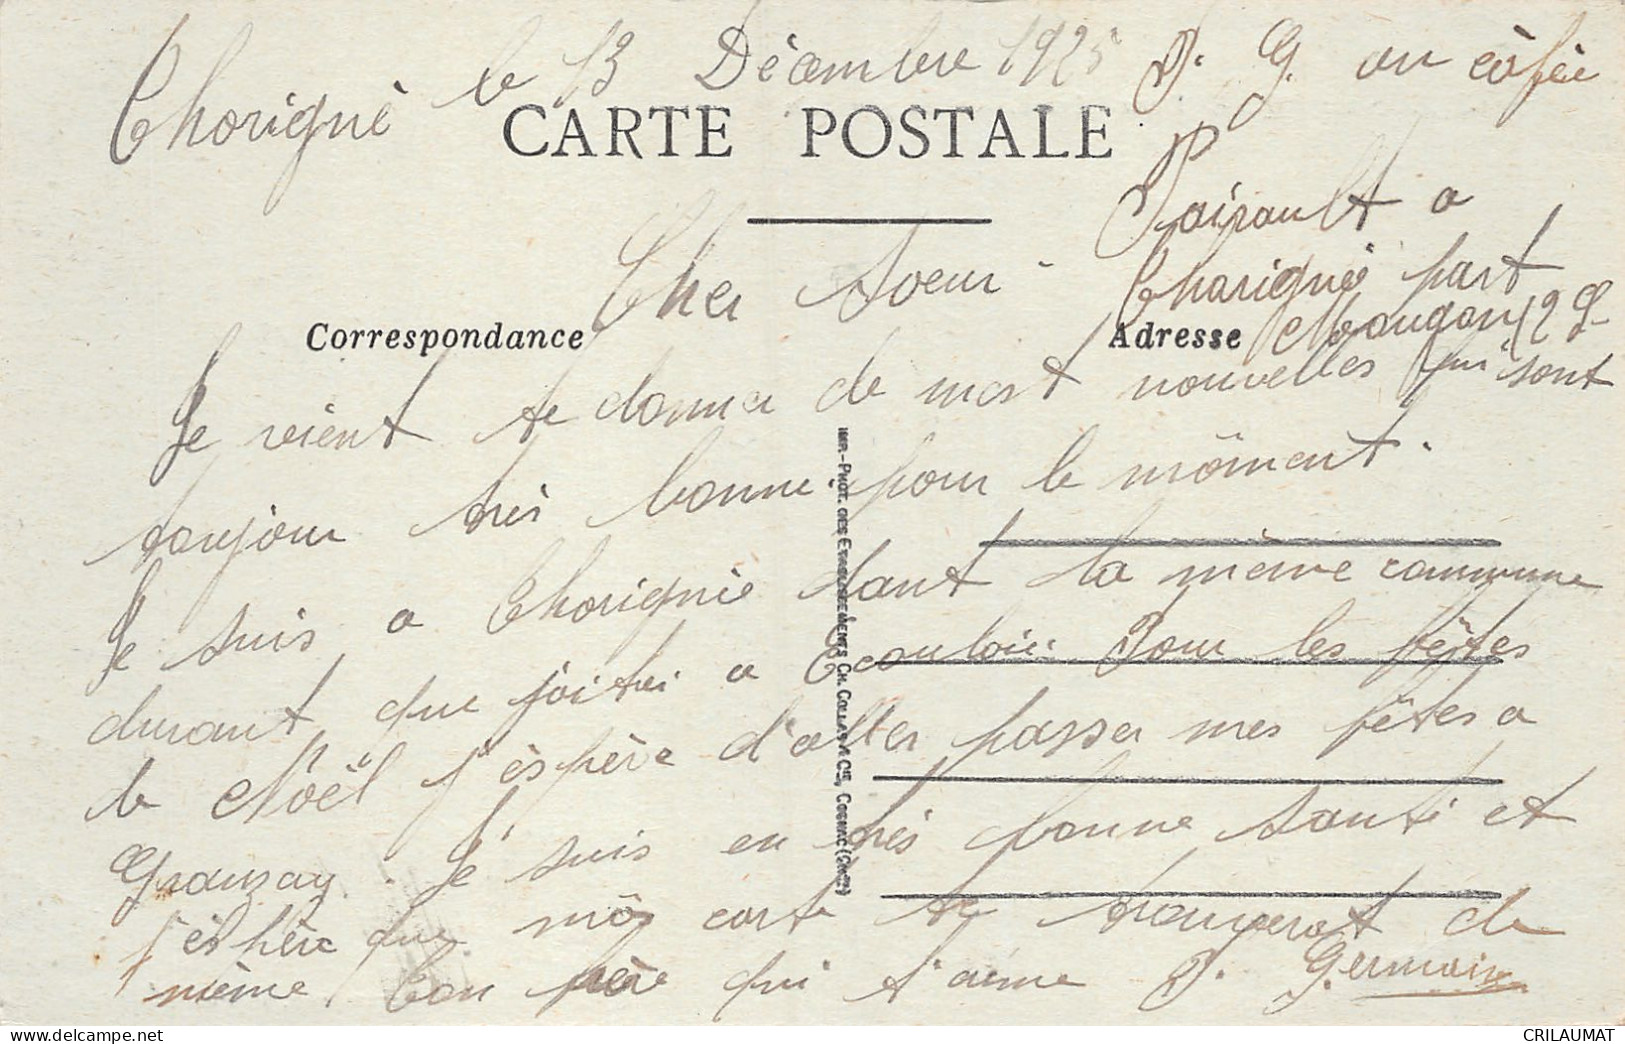 Thorigné le 13 Décembre 1925
P. G. au caféé
CARTE POSTALE
Pairault a
Thorigné part
Mougon (2 S-
Cher Soeur -
Correspondance
Adresse
Je vient te donner de mest nouvelles qui sont
toujour très bonne pour le môment.
Je suis a Thorigné dant la même commune
durant que j'aitai a Pour les fêtes
de Noël j'éspère d'aller passer mes fêtes a
Granzay. Je suis en très bonne santé et
j'éspère que carte te trouverat de
même ton père qui t'aime P. Germain
IMP.-PHOT. DES ETABLISSEMENTS CH. COLLAS & Cie, COGNAC (Chte)
CRILAUMAT